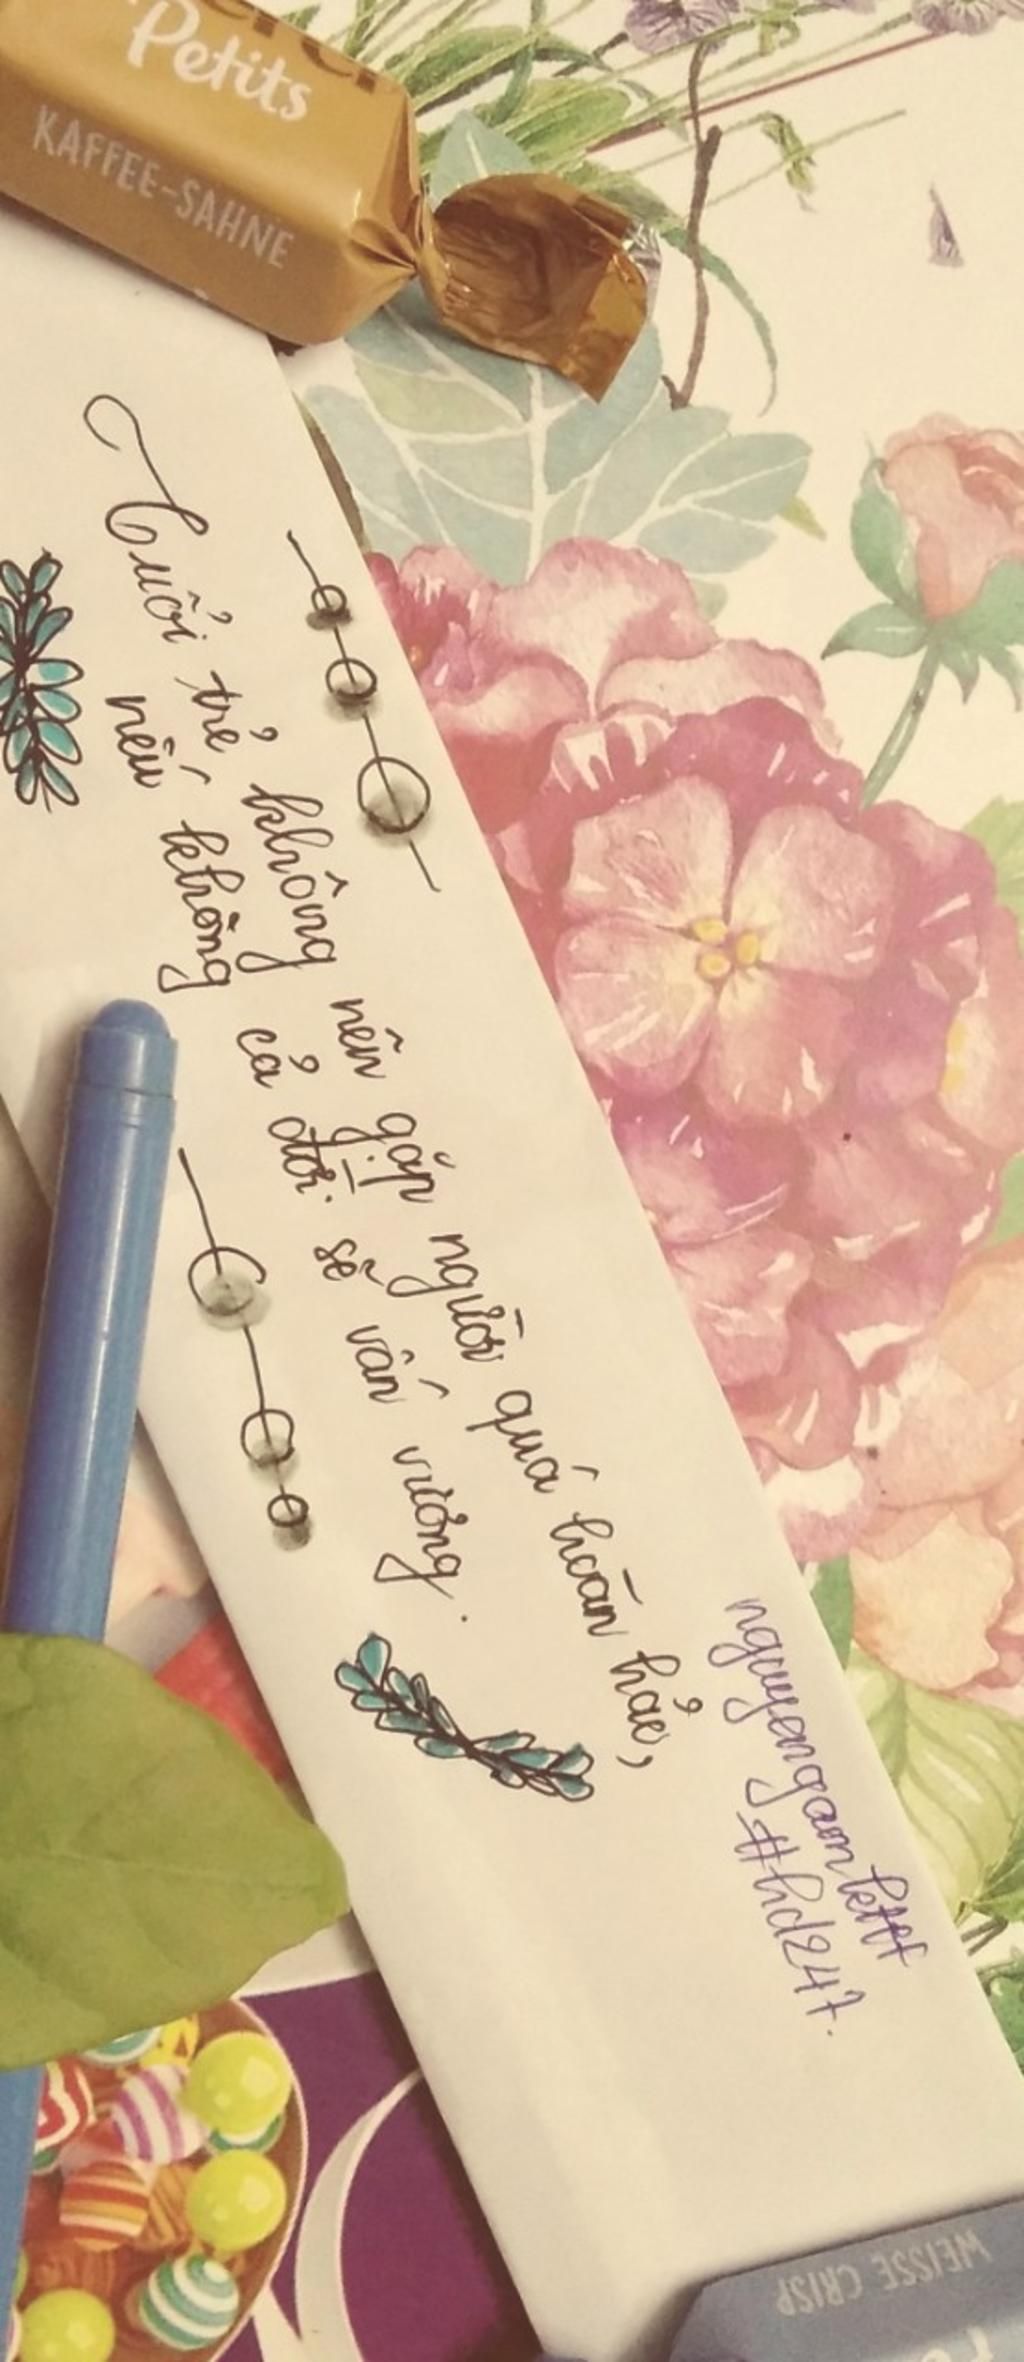 Petits
KAFFEE-SAHNE
Tuổi trẻ không nên gặp người quá hoàn hảo,
nếu không cả đời sẽ vấn vương.
#hd247.
WEISSE CRISP